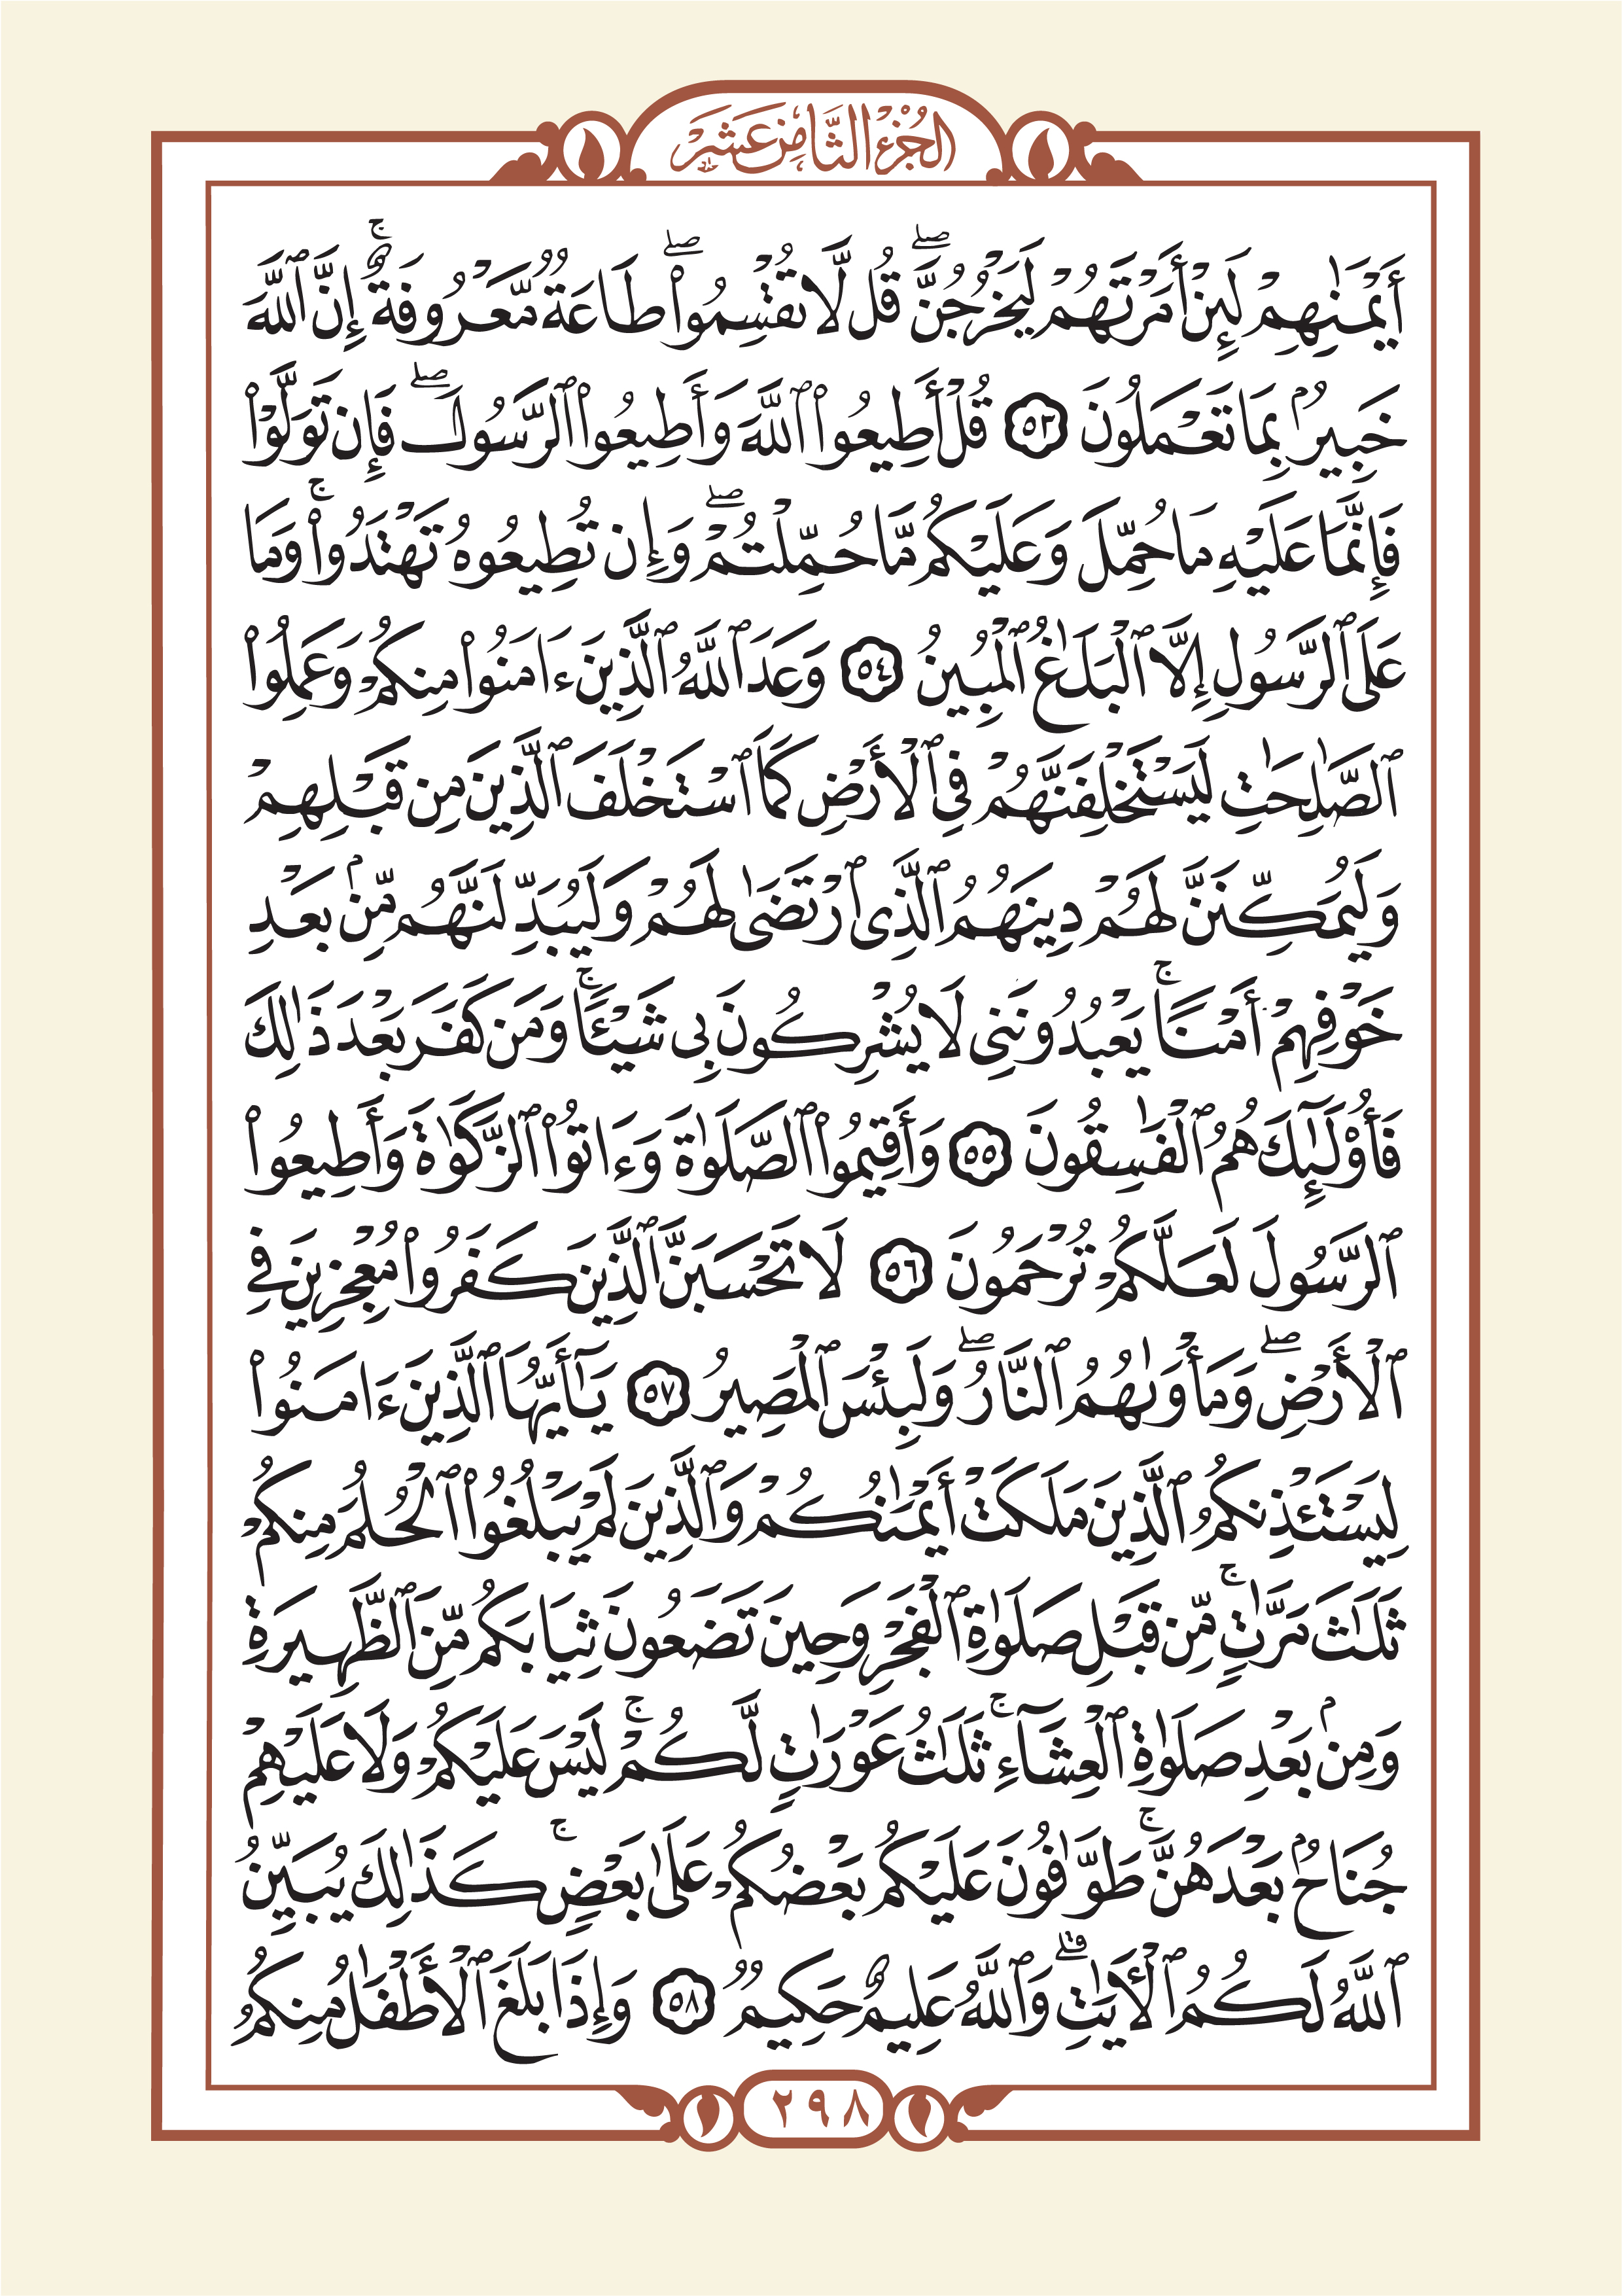 الجزء الثامن عشر
أَيْمَٰنِهِمْ لَئِنْ أَمَرْتَهُمْ لَيَخْرُجُنَّ ۖ قُل لَّا تُقْسِمُوا۟ ۖ طَاعَةٌ مَّعْرُوفَةٌ ۚ إِنَّ ٱللَّهَ
خَبِيرٌۢ بِمَا تَعْمَلُونَ ٥٣ قُلْ أَطِيعُوا۟ ٱللَّهَ وَأَطِيعُوا۟ ٱلرَّسُولَ ۖ فَإِن تَوَلَّوْا۟
فَإِنَّمَا عَلَيْهِ مَا حُمِّلَ وَعَلَيْكُم مَّا حُمِّلْتُمْ ۖ وَإِن تُطِيعُوهُ تَهْتَدُوا۟ ۚ وَمَا
عَلَى ٱلرَّسُولِ إِلَّا ٱلْبَلَٰغُ ٱلْمُبِينُ ٥٤ وَعَدَ ٱللَّهُ ٱلَّذِينَ ءَامَنُوا۟ مِنكُمْ وَعَمِلُوا۟
ٱلصَّٰلِحَٰتِ لَيَسْتَخْلِفَنَّهُمْ فِى ٱلْأَرْضِ كَمَا ٱسْتَخْلَفَ ٱلَّذِينَ مِن قَبْلِهِمْ
وَلَيُمَكِّنَنَّ لَهُمْ دِينَهُمُ ٱلَّذِى ٱرْتَضَىٰ لَهُمْ وَلَيُبَدِّلَنَّهُم مِّنۢ بَعْدِ
خَوْفِهِمْ أَمْنًا ۚ يَعْبُدُونَنِى لَا يُشْرِكُونَ بِى شَيْـًٔا ۚ وَمَن كَفَرَ بَعْدَ ذَٰلِكَ
فَأُو۟لَٰٓئِكَ هُمُ ٱلْفَٰسِقُونَ ٥٥ وَأَقِيمُوا۟ ٱلصَّلَوٰةَ وَءَاتُوا۟ ٱلزَّكَوٰةَ وَأَطِيعُوا۟
ٱلرَّسُولَ لَعَلَّكُمْ تُرْحَمُونَ ٥٦ لَا تَحْسَبَنَّ ٱلَّذِينَ كَفَرُوا۟ مُعْجِزِينَ فِى
ٱلْأَرْضِ ۖ وَمَأْوَىٰهُمُ ٱلنَّارُ ۖ وَلَبِئْسَ ٱلْمَصِيرُ ٥٧ يَٰٓأَيُّهَا ٱلَّذِينَ ءَامَنُوا۟
لِيَسْتَـْٔذِنكُمُ ٱلَّذِينَ مَلَكَتْ أَيْمَٰنُكُمْ وَٱلَّذِينَ لَمْ يَبْلُغُوا۟ ٱلْحُلُمَ مِنكُمْ
ثَلَٰثَ مَرَّٰتٍ ۚ مِّن قَبْلِ صَلَوٰةِ ٱلْفَجْرِ وَحِينَ تَضَعُونَ ثِيَابَكُم مِّنَ ٱلظَّهِيرَةِ
وَمِنۢ بَعْدِ صَلَوٰةِ ٱلْعِشَآءِ ۚ ثَلَٰثُ عَوْرَٰتٍ لَّكُمْ ۚ لَيْسَ عَلَيْكُمْ وَلَا عَلَيْهِمْ
جُنَاحٌۢ بَعْدَهُنَّ ۚ طَوَّٰفُونَ عَلَيْكُم بَعْضُكُمْ عَلَىٰ بَعْضٍ ۚ كَذَٰلِكَ يُبَيِّنُ
ٱللَّهُ لَكُمُ ٱلْـَٔايَٰتِ ۗ وَٱللَّهُ عَلِيمٌ حَكِيمٌ ٥٨ وَإِذَا بَلَغَ ٱلْأَطْفَٰلُ مِنكُمُ
٢٩٨